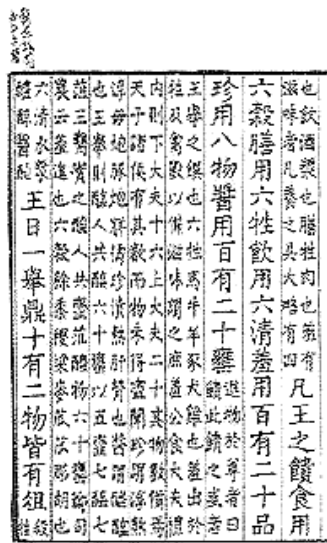 也飲酒漿也膳牲肉也羞有
滋味者凡養之具大略有四
凡王之饋食用
六穀膳用六牲飲用六清羞用百有二十品
珍用八物醬用百有二十罋
進物於尊者曰
饋此饋之盛者
王舉之饌也六牲馬牛羊豕犬雞也羞出於
牲及禽獸以備滋味謂之庶羞公食大夫禮
內則下大夫十六上大夫二十其物數備焉
天子諸侯有其數而物未得盡聞珍謂淳熬
淳母炮豚炮牂擣珍漬熬肝膋也醬謂醯醢
也王舉則醢人共醢六十罋以五齏七醢七
菹三臡實之醯人共齏菹醯物六十罋鄭司
農云羞進也六穀稌黍稷粱麥苽苽彫胡也
六清水漿
醴䣼醫酏
王日一舉鼎十有二物皆有俎
殺
牲